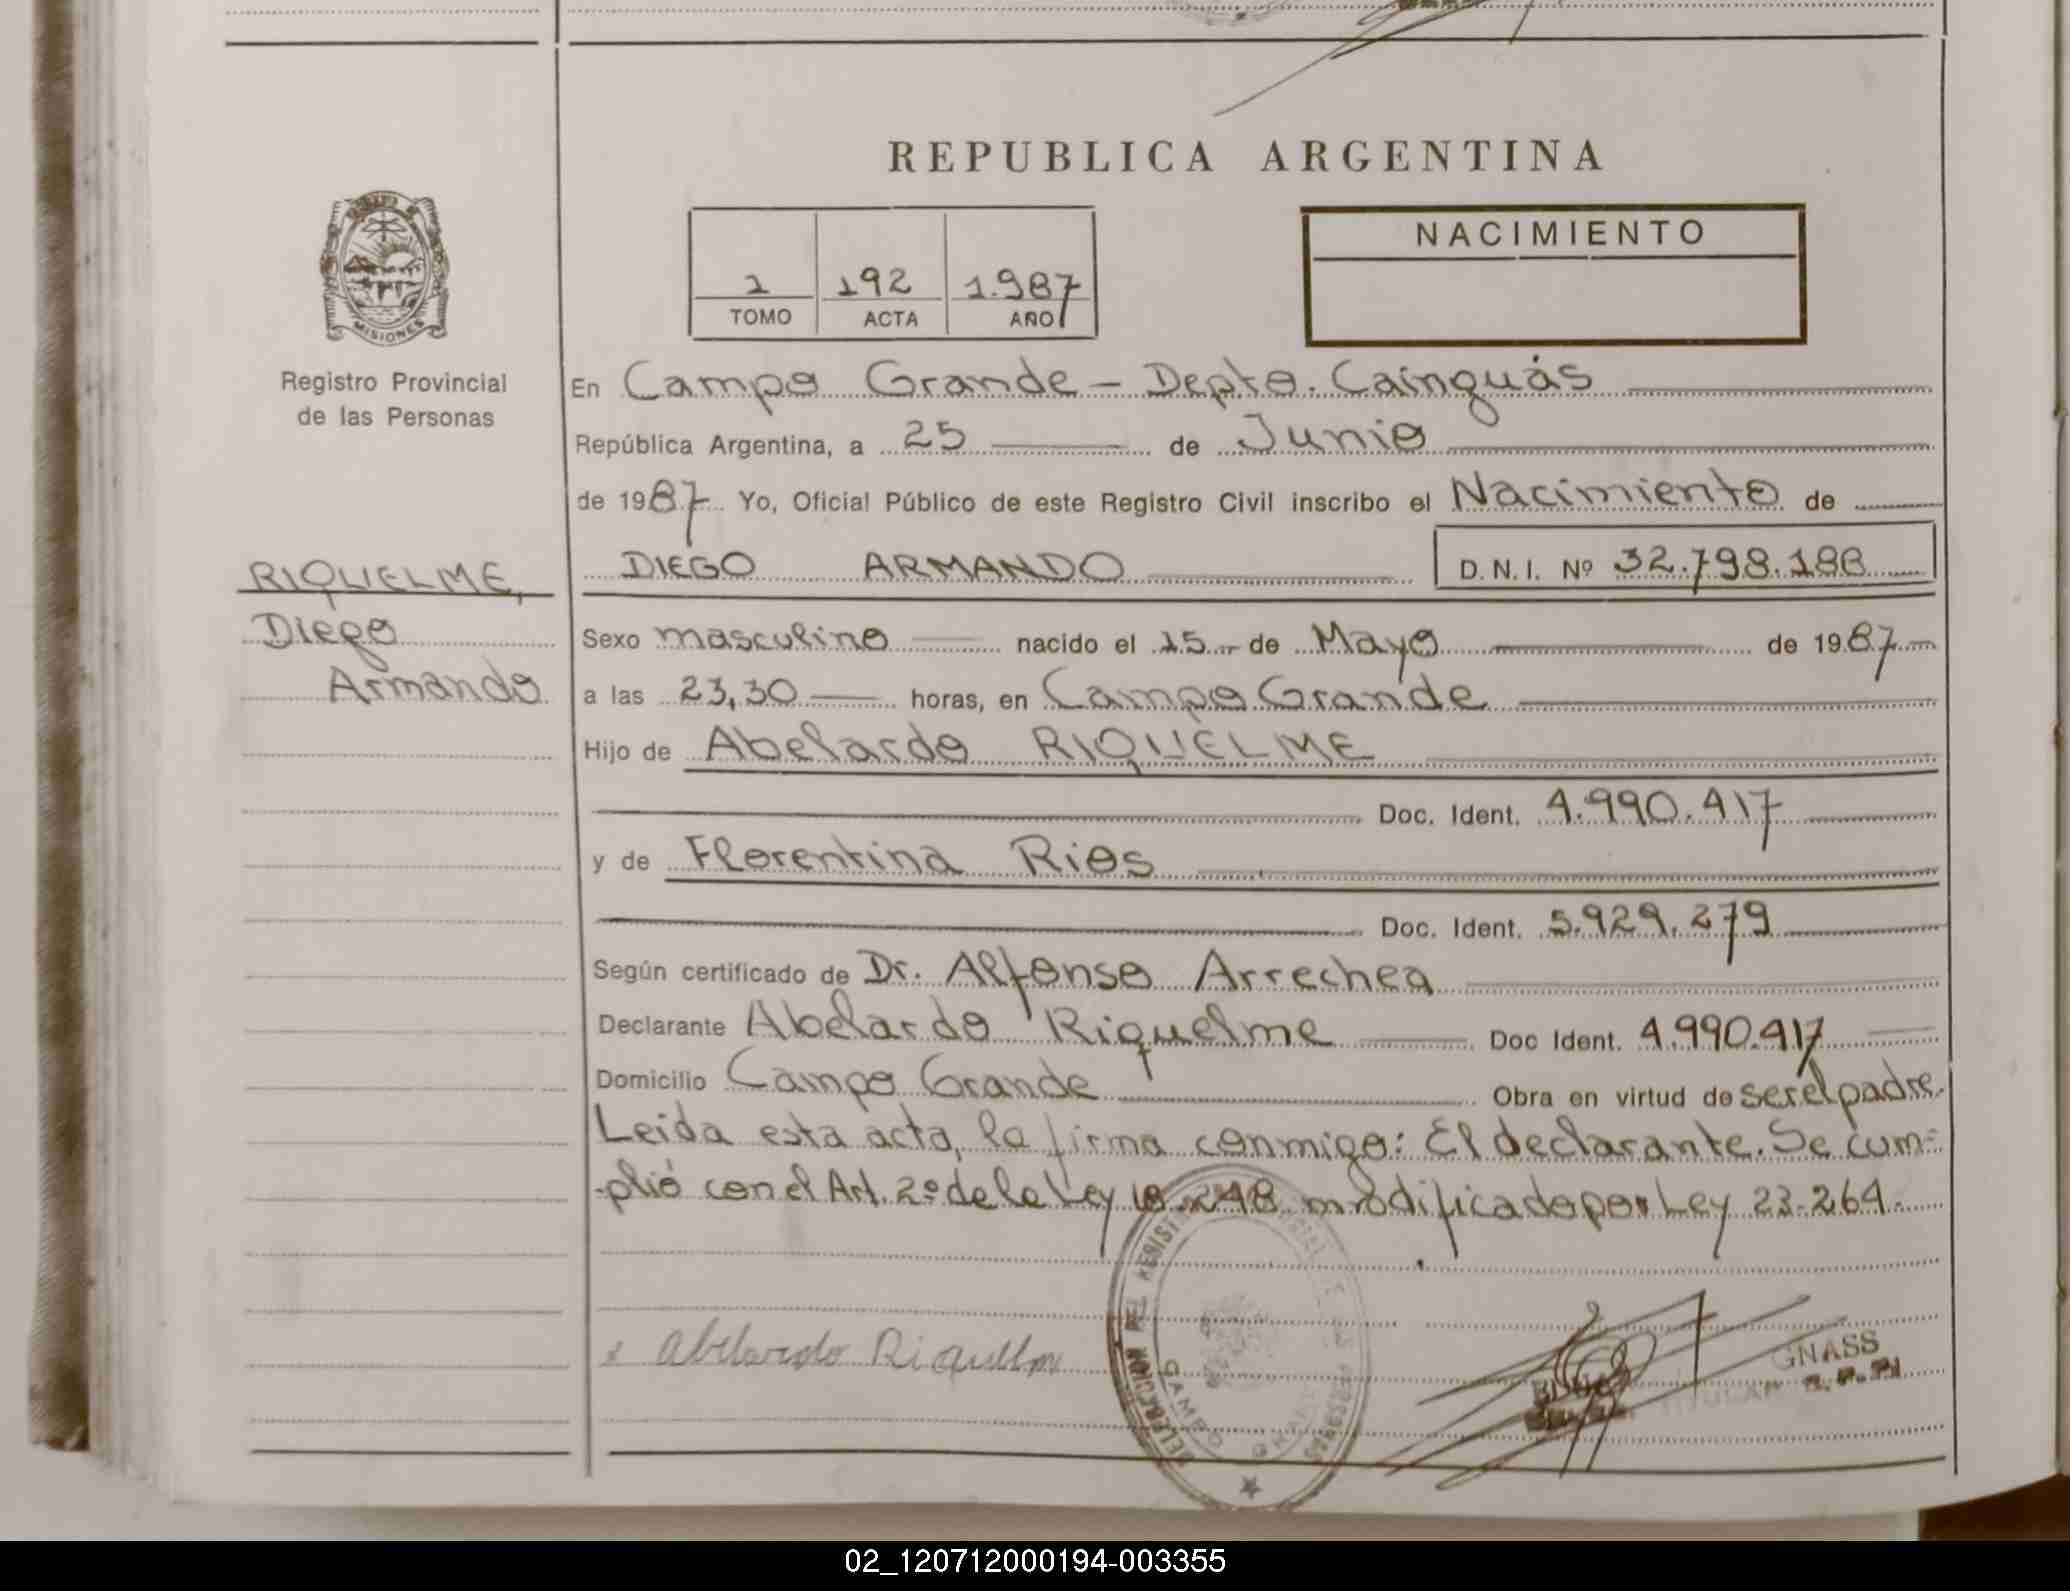 REPUBLICA ARGENTINA
MISIONES
Registro Provincial
de las Personas
1 192 1.987
TOMO ACTA AÑO
NACIMIENTO
En Campo Grande - Depto. Cainguás
República Argentina, a 25 de Junio
de 1987 Yo, Oficial Público de este Registro Civil inscribo el Nacimiento de
RIQUELME,
Diego
Armando
DIEGO ARMANDO D.N.I. Nº 32.798.188
Sexo masculino nacido el 15 de Mayo de 1987
a las 23,30 horas, en Campo Grande
Hijo de Abelardo RIQUELME
Doc. Ident. 4.990.417
y de Florentina Rios
Doc. Ident. 5.929.279
Según certificado de Dr. Alfonso Arrechea
Declarante Abelardo Riquelme Doc Ident. 4.990.417
Domicilio Campo Grande Obra en virtud de ser el padre.
Leida esta acta, la firma conmigo: El declarante. Se cum-
-plió con el Art. 2º de la Ley 18.248 modificado por Ley 23.264.
Abelardo Riquelm
DELEGACION DEL REGISTRO PROVINCIAL DE LAS PERSONAS
CAMPO GRANDE
GNASS
TITULAR R.P.P.
02_120712000194-003355